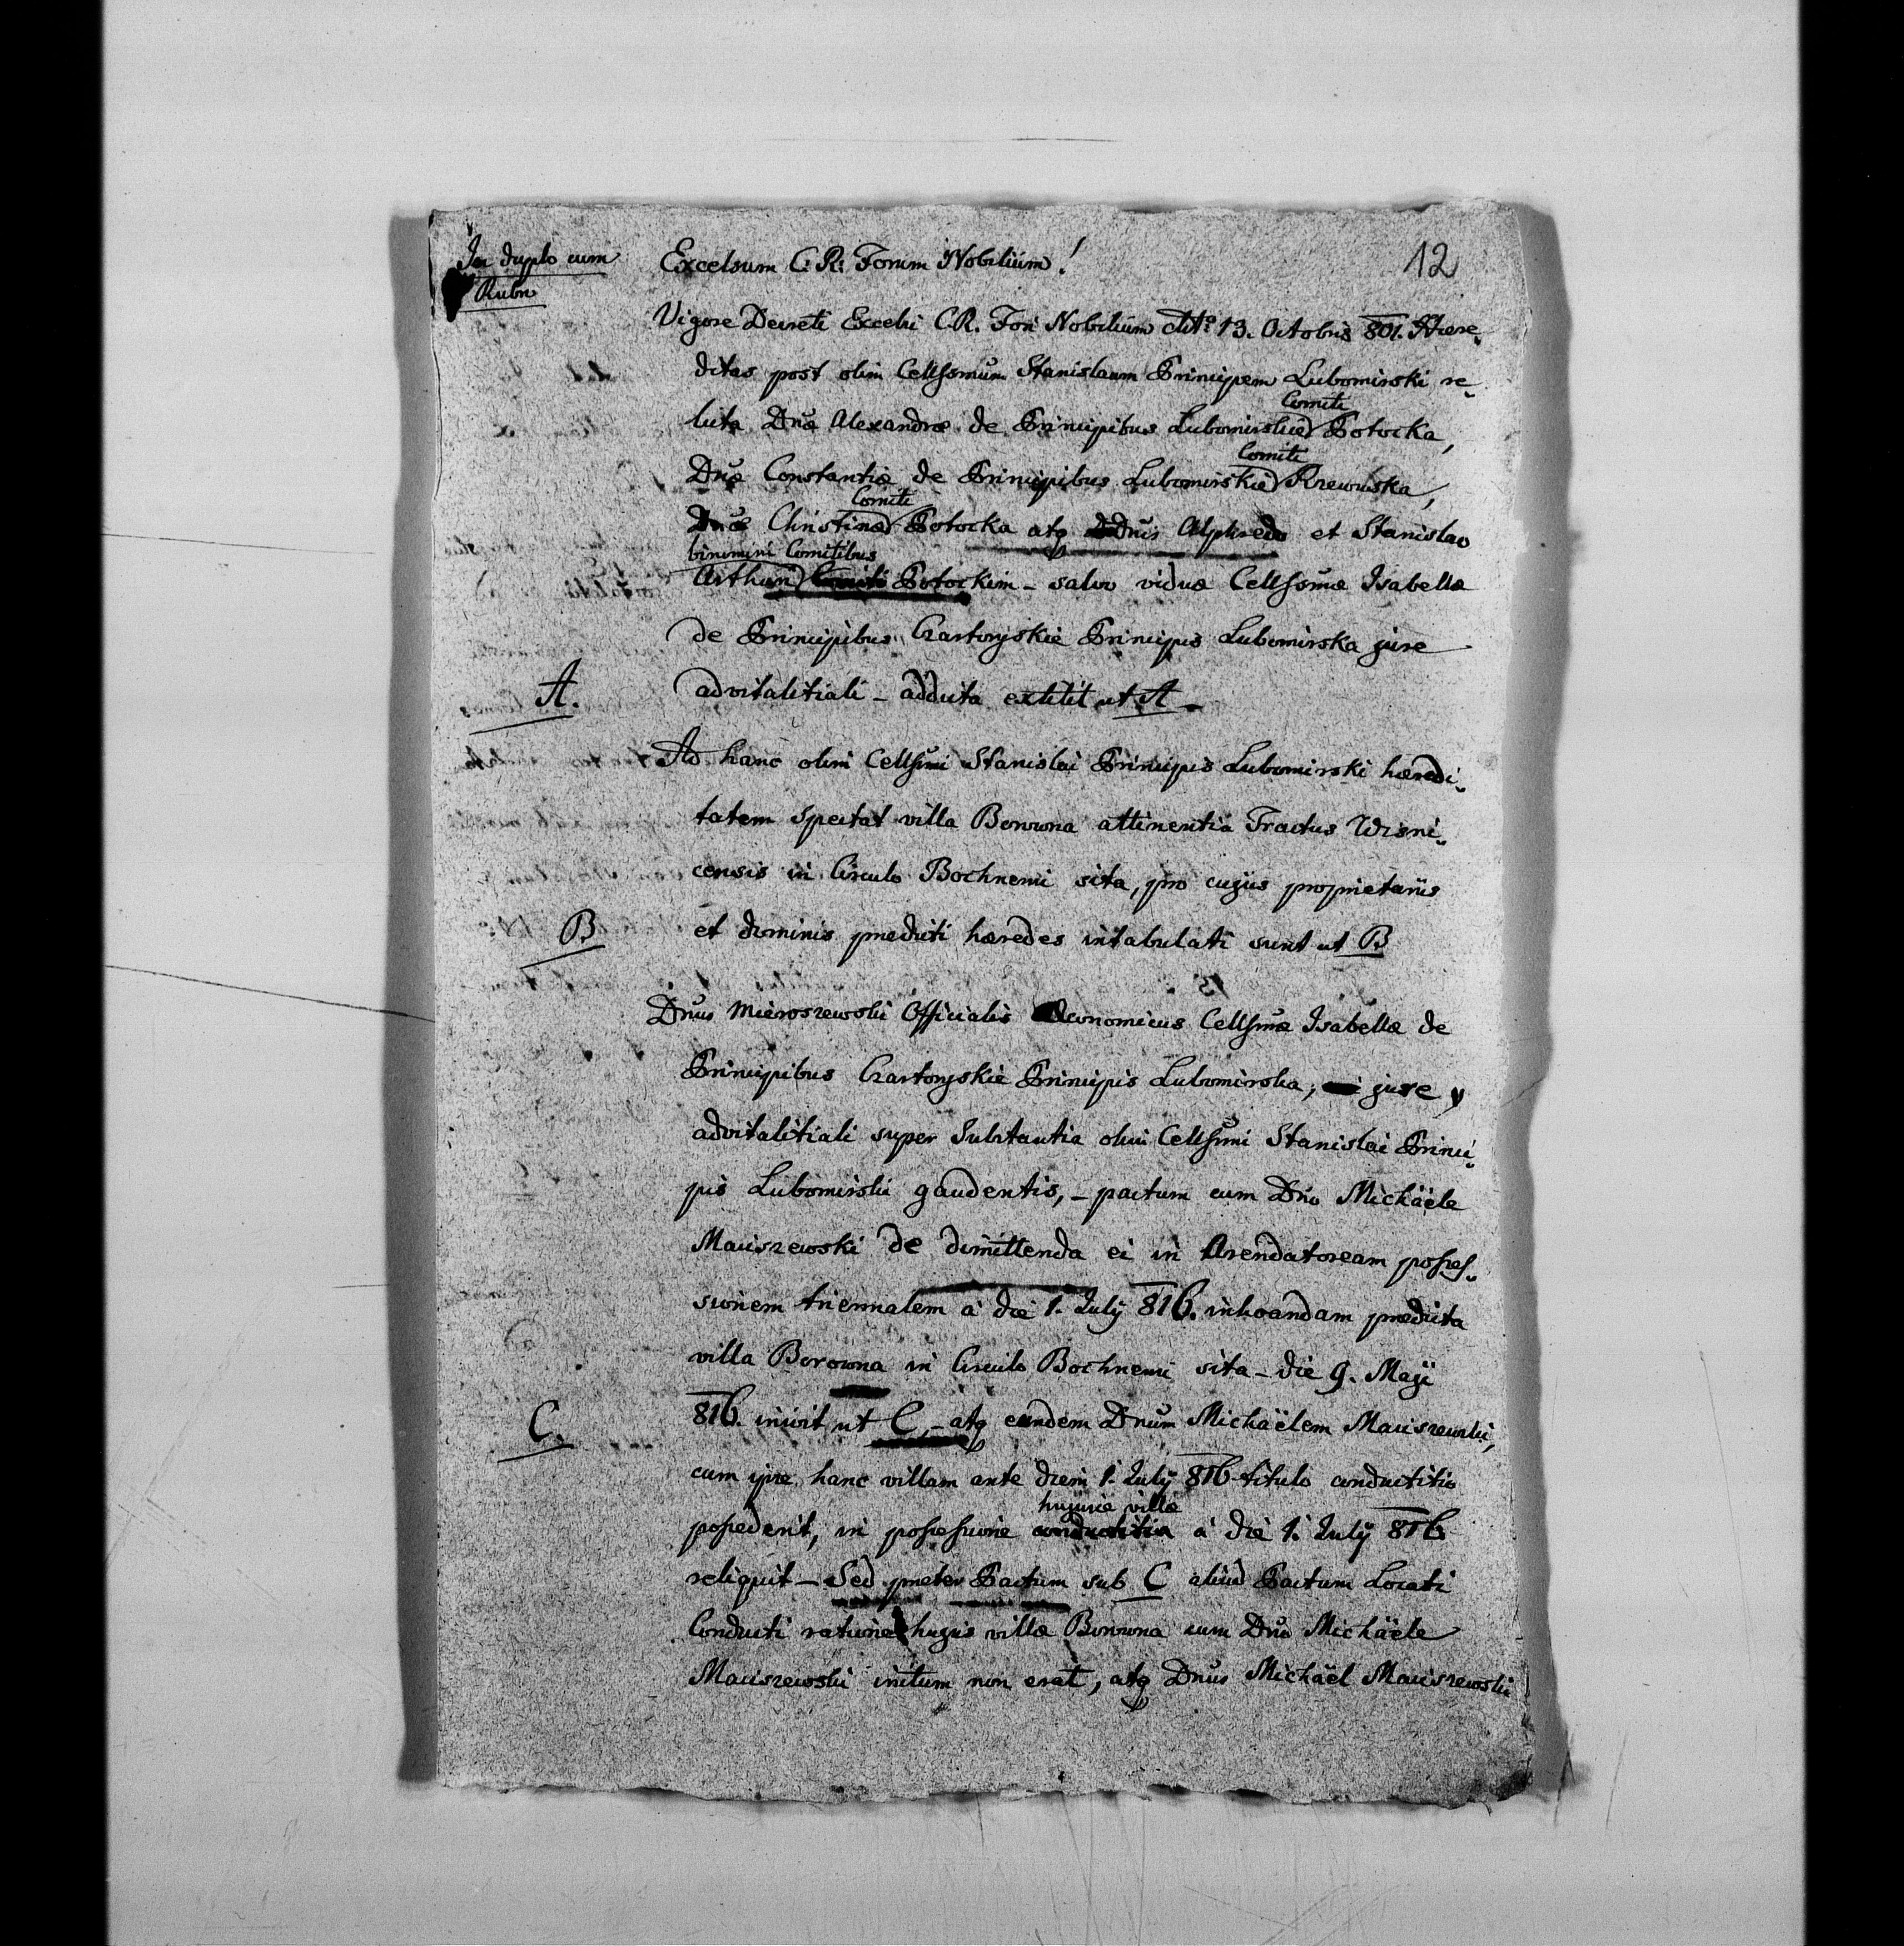 In duplo cum
Rubr
Excelsum C. R. Forum Nobilium!
12
Vigore Decreti Excelsi C.R. Fori Nobilium ddto 13. Octobris 801. Haere-
ditas post olim Cellssmum Stanislaum Principem Lubomirski re-
licta Dnae Alexandrae de Principibus Lubomirskie Comiti Potocka,
Dnae Constantiae de Principibus Lubomirskie Comiti Rzewuska,
Dnae Christinae Comiti Potocka atq Ddnis Alphredo et Stanislao
Arthuri binomini Comitibus Potockim – salvo viduae Cellssmae Isabellae
de Principibus Czartoryskie Principis Lubomirska jure
A. advitalitiali – addicta extitit ut A –
Ad hanc olim Cellssmi Stanislai Principis Lubomirski haeredi-
tatem spectat villa Borowna attinentia Tractus Wisni-
censis in Circulo Bochnensi sita, pro cujus proprietariis
B et dominis praedicti haeredes intabulati sunt ut B
Dnus Mieroszewski Officialis Oeconomicus Cellssmae Isabellae de
Principibus Czartoryskie Principis Lubomirska, jure
advitalitiali super Substantia olim Cellssmi Stanislai Princi-
pis Lubomirski gaudentis, – pactum cum Dno Michäele
Maciszewski de dimittenda ei in Arendatoream posses-
sionem triennalem à die 1. July 816. inhoandam praedicta
villa Borowna in Circulo Bochnensi sita – die 9. Maji
C. 816. inivit ut C, – atq eundem Dnum Michäelem Maciszewski,
cum ipse hanc villam ante diem 1. July 816 titulo conductitio
possederit, in possessione hujus villae à die 1. July 816
reliquit – Sed praeter Pactum sub C aliud Pactum Locati
Conducti ratione hujus villae Borowna cum Dno Michäele
Maciszewski initum non erat, atq Dnus Michäel Maciszewski